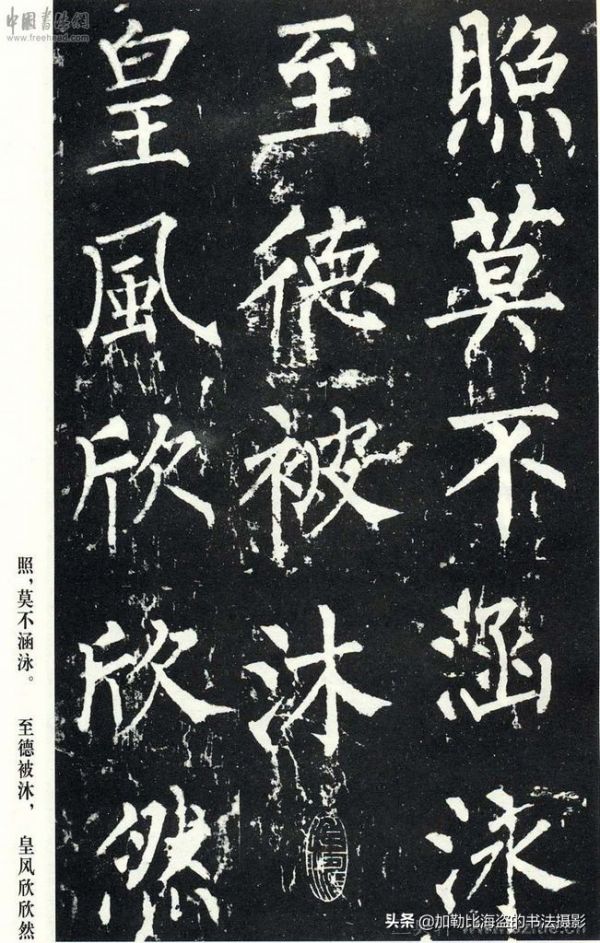 照莫不涵泳
至德被沐
皇風欣欣然
照，莫不涵泳。 至德被沐， 皇风欣欣然
中国书法網
www.freehead.com
头条 @加勒比海盗的书法摄影